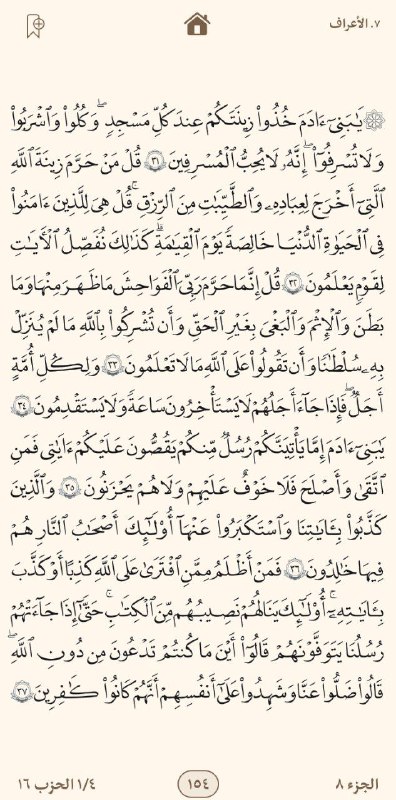 ٧. الأعراف
۞ يَٰبَنِىٓ ءَادَمَ خُذُوا۟ زِينَتَكُمْ عِندَ كُلِّ مَسْجِدٍ وَكُلُوا۟ وَٱشْرَبُوا۟
وَلَا تُسْرِفُوٓا۟ ۚ إِنَّهُۥ لَا يُحِبُّ ٱلْمُسْرِفِينَ ٣١ قُلْ مَنْ حَرَّمَ زِينَةَ ٱللَّهِ
ٱلَّتِىٓ أَخْرَجَ لِعِبَادِهِۦ وَٱلطَّيِّبَٰتِ مِنَ ٱلرِّزْقِ ۚ قُلْ هِىَ لِلَّذِينَ ءَامَنُوا۟
فِى ٱلْحَيَوٰةِ ٱلدُّنْيَا خَالِصَةً يَوْمَ ٱلْقِيَٰمَةِ ۗ كَذَٰلِكَ نُفَصِّلُ ٱلْءَايَٰتِ
لِقَوْمٍ يَعْلَمُونَ ٣٢ قُلْ إِنَّمَا حَرَّمَ رَبِّىَ ٱلْفَوَٰحِشَ مَا ظَهَرَ مِنْهَا وَمَا
بَطَنَ وَٱلْإِثْمَ وَٱلْبَغْىَ بِغَيْرِ ٱلْحَقِّ وَأَن تُشْرِكُوا۟ بِٱللَّهِ مَا لَمْ يُنَزِّلْ
بِهِۦ سُلْطَٰنًا وَأَن تَقُولُوا۟ عَلَى ٱللَّهِ مَا لَا تَعْلَمُونَ ٣٣ وَلِكُلِّ أُمَّةٍ
أَجَلٌ ۖ فَإِذَا جَآءَ أَجَلُهُمْ لَا يَسْتَأْخِرُونَ سَاعَةً وَلَا يَسْتَقْدِمُونَ ٣٤
يَٰبَنِىٓ ءَادَمَ إِمَّا يَأْتِيَنَّكُمْ رُسُلٌ مِّنكُمْ يَقُصُّونَ عَلَيْكُمْ ءَايَٰتِى فَمَنِ
ٱتَّقَىٰ وَأَصْلَحَ فَلَا خَوْفٌ عَلَيْهِمْ وَلَا هُمْ يَحْزَنُونَ ٣٥ وَٱلَّذِينَ
كَذَّبُوا۟ بِـَٔايَٰتِنَا وَٱسْتَكْبَرُوا۟ عَنْهَآ أُو۟لَٰٓئِكَ أَصْحَٰبُ ٱلنَّارِ هُمْ
فِيهَا خَٰلِدُونَ ٣٦ فَمَنْ أَظْلَمُ مِمَّنِ ٱفْتَرَىٰ عَلَى ٱللَّهِ كَذِبًا أَوْ كَذَّبَ
بِـَٔايَٰتِهِۦٓ ۚ أُو۟لَٰٓئِكَ يَنَالُهُمْ نَصِيبُهُم مِّنَ ٱلْكِتَٰبِ ۖ حَتَّىٰٓ إِذَا جَآءَتْهُمْ
رُسُلُنَا يَتَوَفَّوْنَهُمْ قَالُوٓا۟ أَيْنَ مَا كُنتُمْ تَدْعُونَ مِن دُونِ ٱللَّهِ ۖ
قَالُوا۟ ضَلُّوا۟ عَنَّا وَشَهِدُوا۟ عَلَىٰٓ أَنفُسِهِمْ أَنَّهُمْ كَانُوا۟ كَٰفِرِينَ ٣٧
الجزء ٨
١٥٤
١/٤ الحزب ١٦